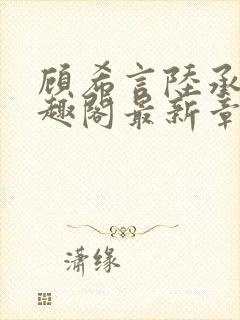 顾希言陸承
趣阁最新章
潇缘